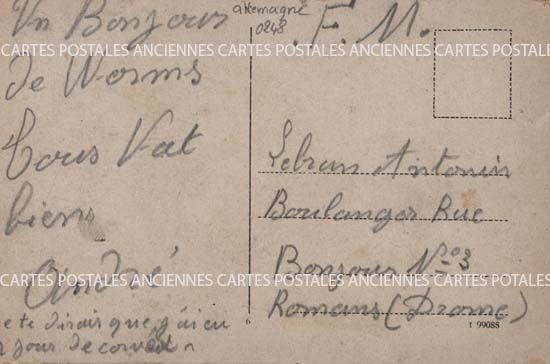 Un Bonjour
de Worms
Tous Vat
bien
André
e te disais que j'ai eu
jour de
allemagne
0248
F. M.
Lebrun Antonin
Boulanger Rue
Bonjour N° 3
Romans (Drome)
6
t 99088
CARTES POSTALES ANCIENNES CARTES POSTALES ANCIENNES CARTES POSTALES ANCIENNES
CARTES POSTALES ANCIENNES CARTES POSTALES ANCIENNES CARTES POSTALES ANCIENNES